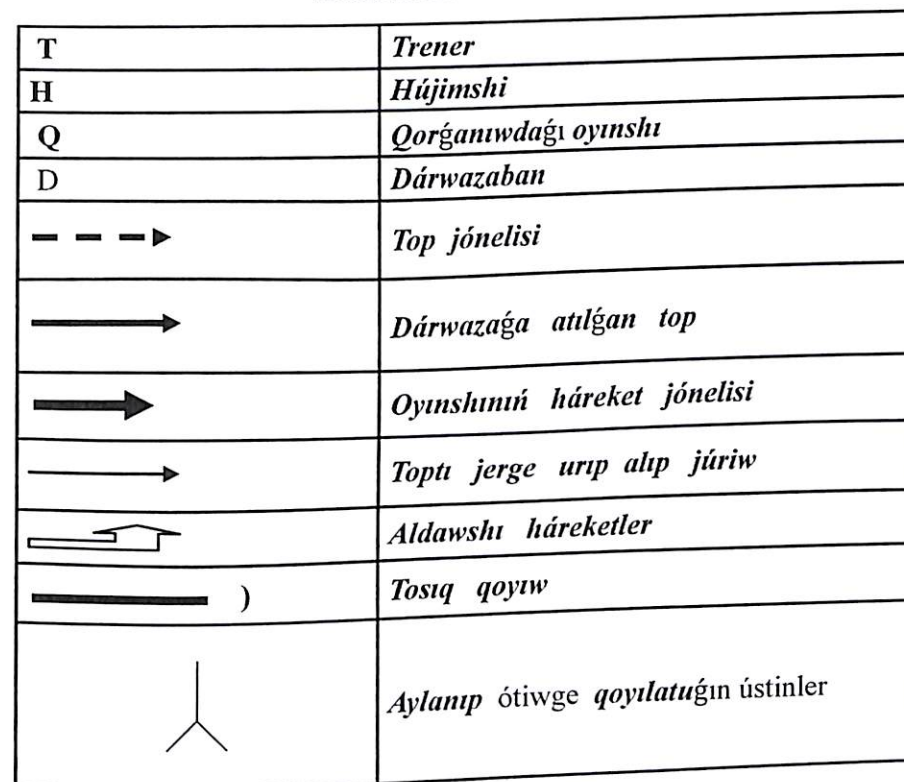 T Trener
H Hújimshi
Q Qorǵanıwdaǵı oyınshı
D Dárwazaban
Top jónelisi
Dárwazaǵa atılǵan top
Oyınshınıń háreket jónelisi
Toptı jerge urıp alıp júriw
Aldawshı háreketler
) Tosıq qoyıw
Aylanıp ótiwge qoyılatuǵın ústinler